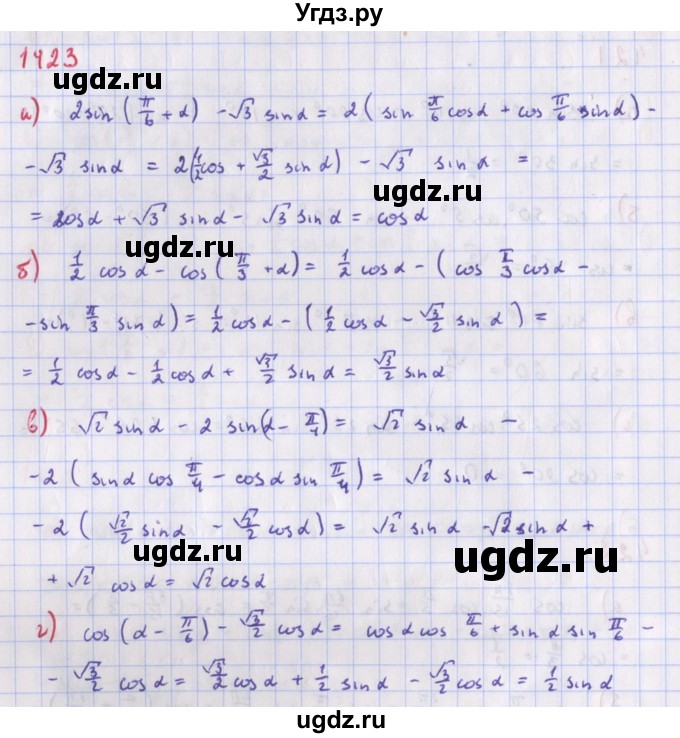 Угдз.ру
1423
ugdz.ru
а) 2sin (π/6 + α) - √3 sin α = 2 ( sin π/6 cos α + cos π/6 sin α ) -
- √3 sin α = 2(1/2 cos + √3/2 sin α) - √3 sin α =
ugdz.ru
= cos α + √3 sin α - √3 sin α = cos α
ugdz.ru
б) 1/2 cos α - cos ( π/3 + α) = 1/2 cos α - ( cos π/3 cos α -
- sin π/3 sin α ) = 1/2 cos α - ( 1/2 cos α - √3/2 sin α ) =
ugdz.ru
= 1/2 cos α - 1/2 cos α + √3/2 sin α = √3/2 sin α
ugdz.ru
в) √2 sin α - 2 sin(α - π/4) = √2 sin α -
- 2 ( sin α cos π/4 - cos α sin π/4 ) = √2 sin α -
ugdz.ru
- 2 ( √2/2 sin α - √2/2 cos α ) = √2 sin α - √2 sin α +
ugdz.ru
+ √2 cos α = √2 cos α
ugdz.ru
г) cos (α - π/6) - √3/2 cos α = cos α cos π/6 + sin α sin π/6 -
- √3/2 cos α = √3/2 cos α + 1/2 sin α - √3/2 cos α = 1/2 sin α
ugdz.ru
ugdz.ru